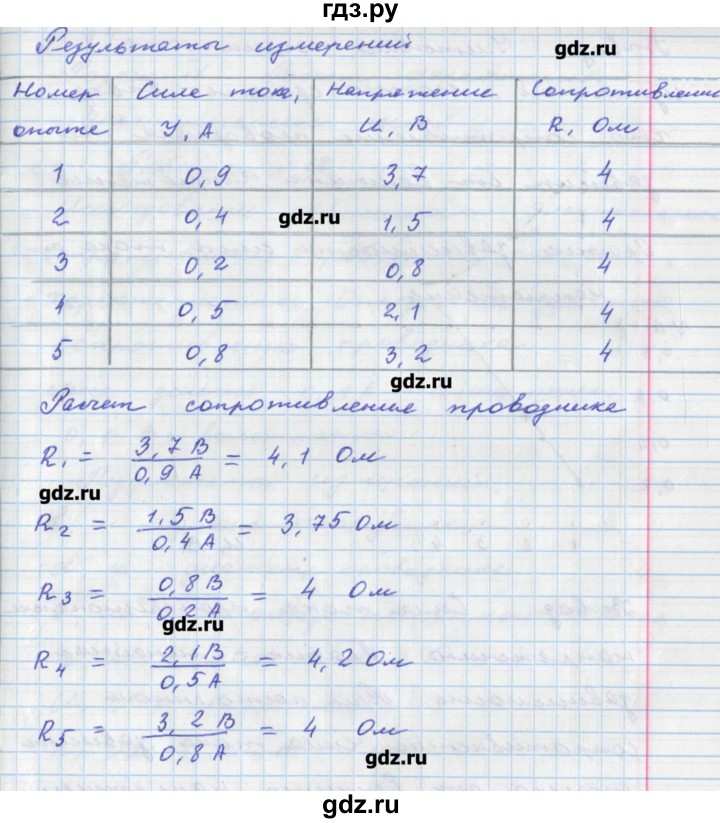 гдз.ру
Результаты измерений
gdz.ru
Номер опыта Сила тока, Y, А Напряжение U, В Сопротивление R, Ом
1 0,9 3,7 4
2 0,4 1,5 4
gdz.ru
3 0,2 0,8 4
4 0,5 2,1 4
5 0,8 3,2 4
gdz.ru
Расчет сопротивление проводнике
R1 = 3,7 В / 0,9 А = 4,1 Ом
gdz.ru
R2 = 1,5 В / 0,4 А = 3,75 Ом
R3 = 0,8 В / 0,2 А = 4 Ом
gdz.ru
R4 = 2,1 В / 0,5 А = 4,2 Ом
R5 = 3,2 В / 0,8 А = 4 Ом
gdz.ru
gdz.ru